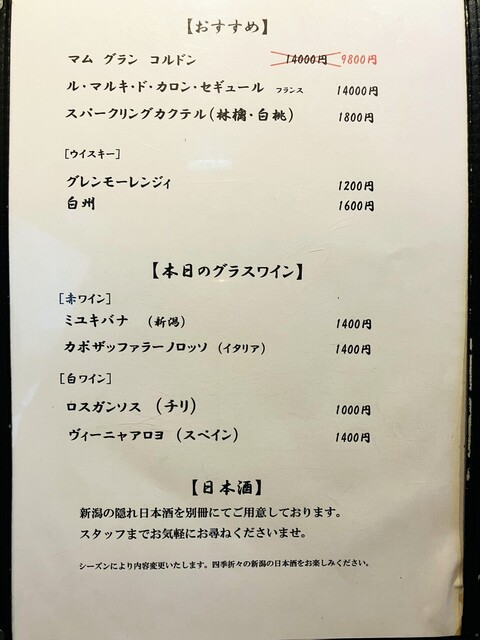 【おすすめ】
マム グラン コルドン 14000円 9800円
ル・マルキ・ド・カロン・セギュール フランス 14000円
スパークリングカクテル(林檎・白桃) 1800円
[ウイスキー]
グレンモーレンジィ 1200円
白州 1600円
【本日のグラスワイン】
[赤ワイン]
ミユキバナ (新潟) 1400円
カボザッファラーノロッソ (イタリア) 1400円
[白ワイン]
ロスガンソス (チリ) 1000円
ヴィーニャアロヨ (スペイン) 1400円
【日本酒】
新潟の隠れ日本酒を別冊にてご用意しております。
スタッフまでお気軽にお尋ねくださいませ。
シーズンにより内容変更いたします。四季折々の新潟の日本酒をお楽しみください。